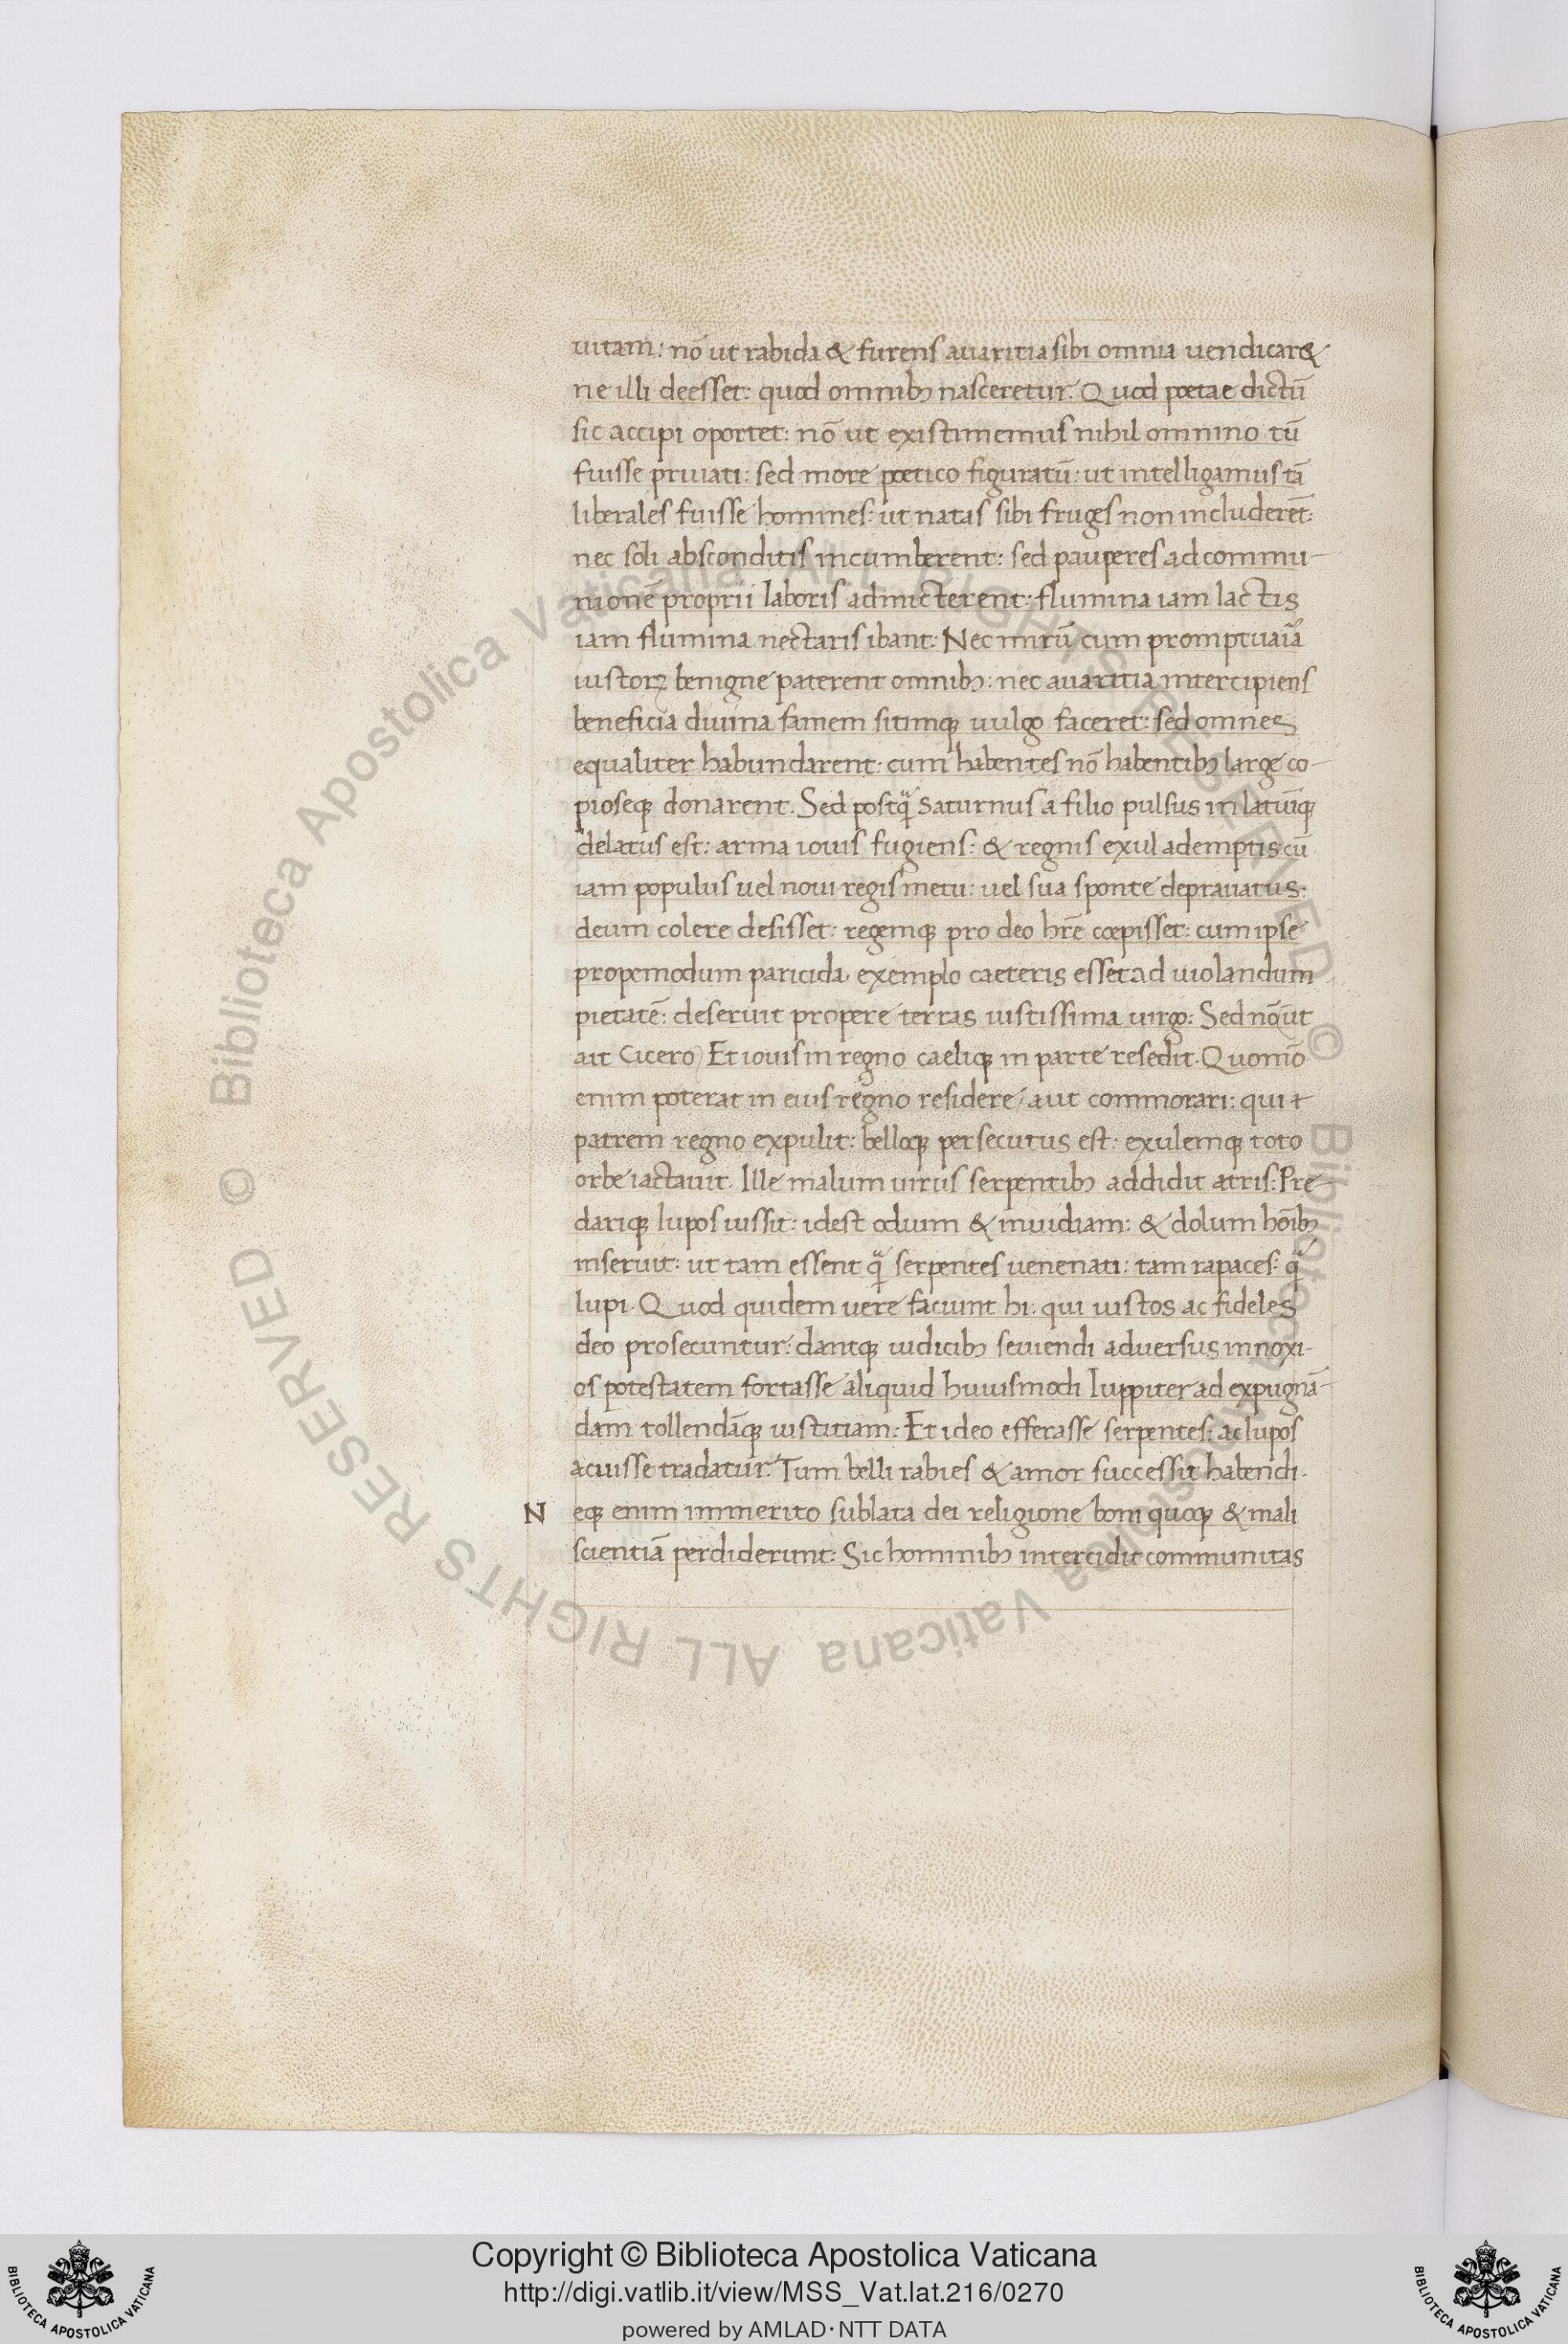 uitam: nō ut rabida & furens auaritia sibi omnia uendicar&
ne illi deesset: quod omnibꝫ nasceretur. Quod poetae dictū
sic accipi oportet: nō ut existimemus nihil omnino tū
fuisse priuati: sed more poetico figuratū: ut intelligamus tā
liberales fuisse homines: ut natas sibi fruges non includerēt:
nec soli absconditis incumberent: sed pauperes ad commu-
nionē proprii laboris admicterent: flumina iam lactis
iam flumina nectaris ibant: Nec mirū cum promptuaria
iustorꝝ benigne paterent omnibꝫ: nec auaritia intercipiens
beneficia diuina famem sitimqꝫ uulgo faceret: sed omnes
equaliter habundarent: cum habentes nō habentibꝫ large co-
pioseqꝫ donarent. Sed postqᷓ Saturnus a filio pulsus in latiūqꝫ
delatus est: arma iouis fugiens: & regnis exul ademptis cū
iam populus uel noui regis metu: uel sua sponte deprauatus.
deum colere desisset: regemqꝫ pro deo hr̄e coepisset: cum ipse
propemodum paricida exemplo caeteris esset ad uiolandum
pietatē: deseruit propere terras iustissima uirgo: Sed nō ut
ait Cicero) Et iouis in regno caeliqꝫ in parte resedit. Quomō
enim poterat in eius regno residere / aut commorari: qui &
patrem regno expulit: belloqꝫ persecutus est: exulemqꝫ toto
orbe iactauit. Ille malum uirus serpentibꝫ addidit atris: Pre-
dariqꝫ lupos iussit: idest odium & inuidiam: & dolum hoībꝫ
inseruit: ut tam essent qᷓ serpentes uenenati: tam rapaces: qᷓ
lupi. Quod quidem uere faciunt hi: qui iustos ac fideles
deo prosecuntur: dantqꝫ iudicibꝫ seuiendi aduersus innoxi-
os potestatem fortasse aliquid huiusmodi Iuppiter ad expugnā-
dam tollendāqꝫ iustitiam: Et ideo efferasse serpentes: ac lupos
acuisse tradatur. Tum belli rabies & amor successit habendi.
N eqꝫ enim immerito sublata dei religione boni quoqꝫ & mali
scientiā perdiderunt: Sic hominibꝫ intercidit communitas
© Biblioteca Apostolica Vaticana ALL RIGHTS RESERVED © Biblioteca Apostolica Vaticana ALL RIGHTS RESERVED
Copyright © Biblioteca Apostolica Vaticana
http://digi.vatlib.it/view/MSS_Vat.lat.216/0270
powered by AMLAD·NTT DATA
BIBLIOTECA APOSTOLICA VATICANA
BIBLIOTECA APOSTOLICA VATICANA